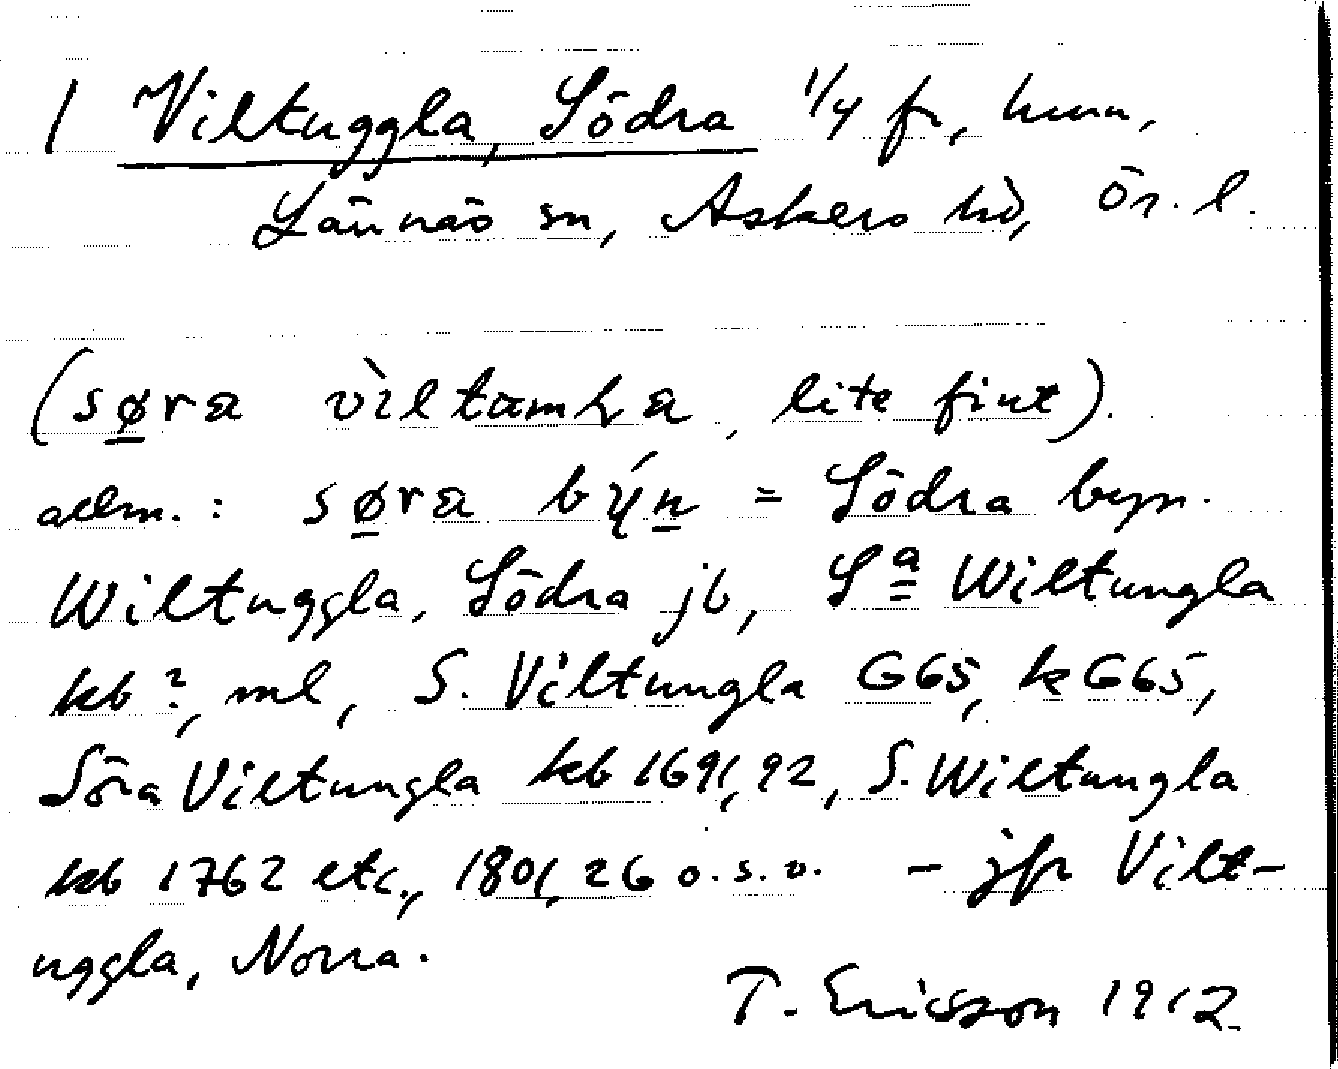 1 Viltuggla, Södra 1/4 fr, hmn,
Lännäs sn, Askers hd, Ör. l.
(søra viltamka, lite fint).
allm.: søra býn = Södra byn.
Wiltuggla, Södra jb, Sª Wiltungla
kb ?, ml, S. Viltungla G65, kG65,
Söra Viltungla kb 1691, 92, S. Wiltungla
kb 1762 etc., 1801, 26 o.s.v. - jfr Vilt-
uggla, Norra.
T. Ericsson 1912.